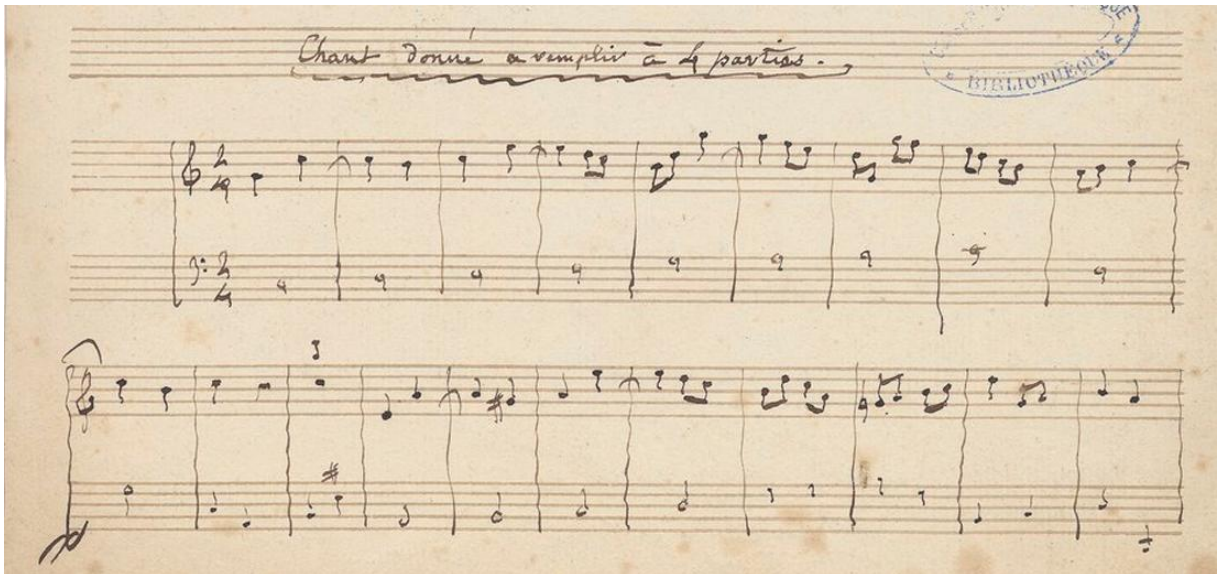 Chant donné a remplir à 4 parties.
BIBLIOTHÈQUE
2
4
2
4
3